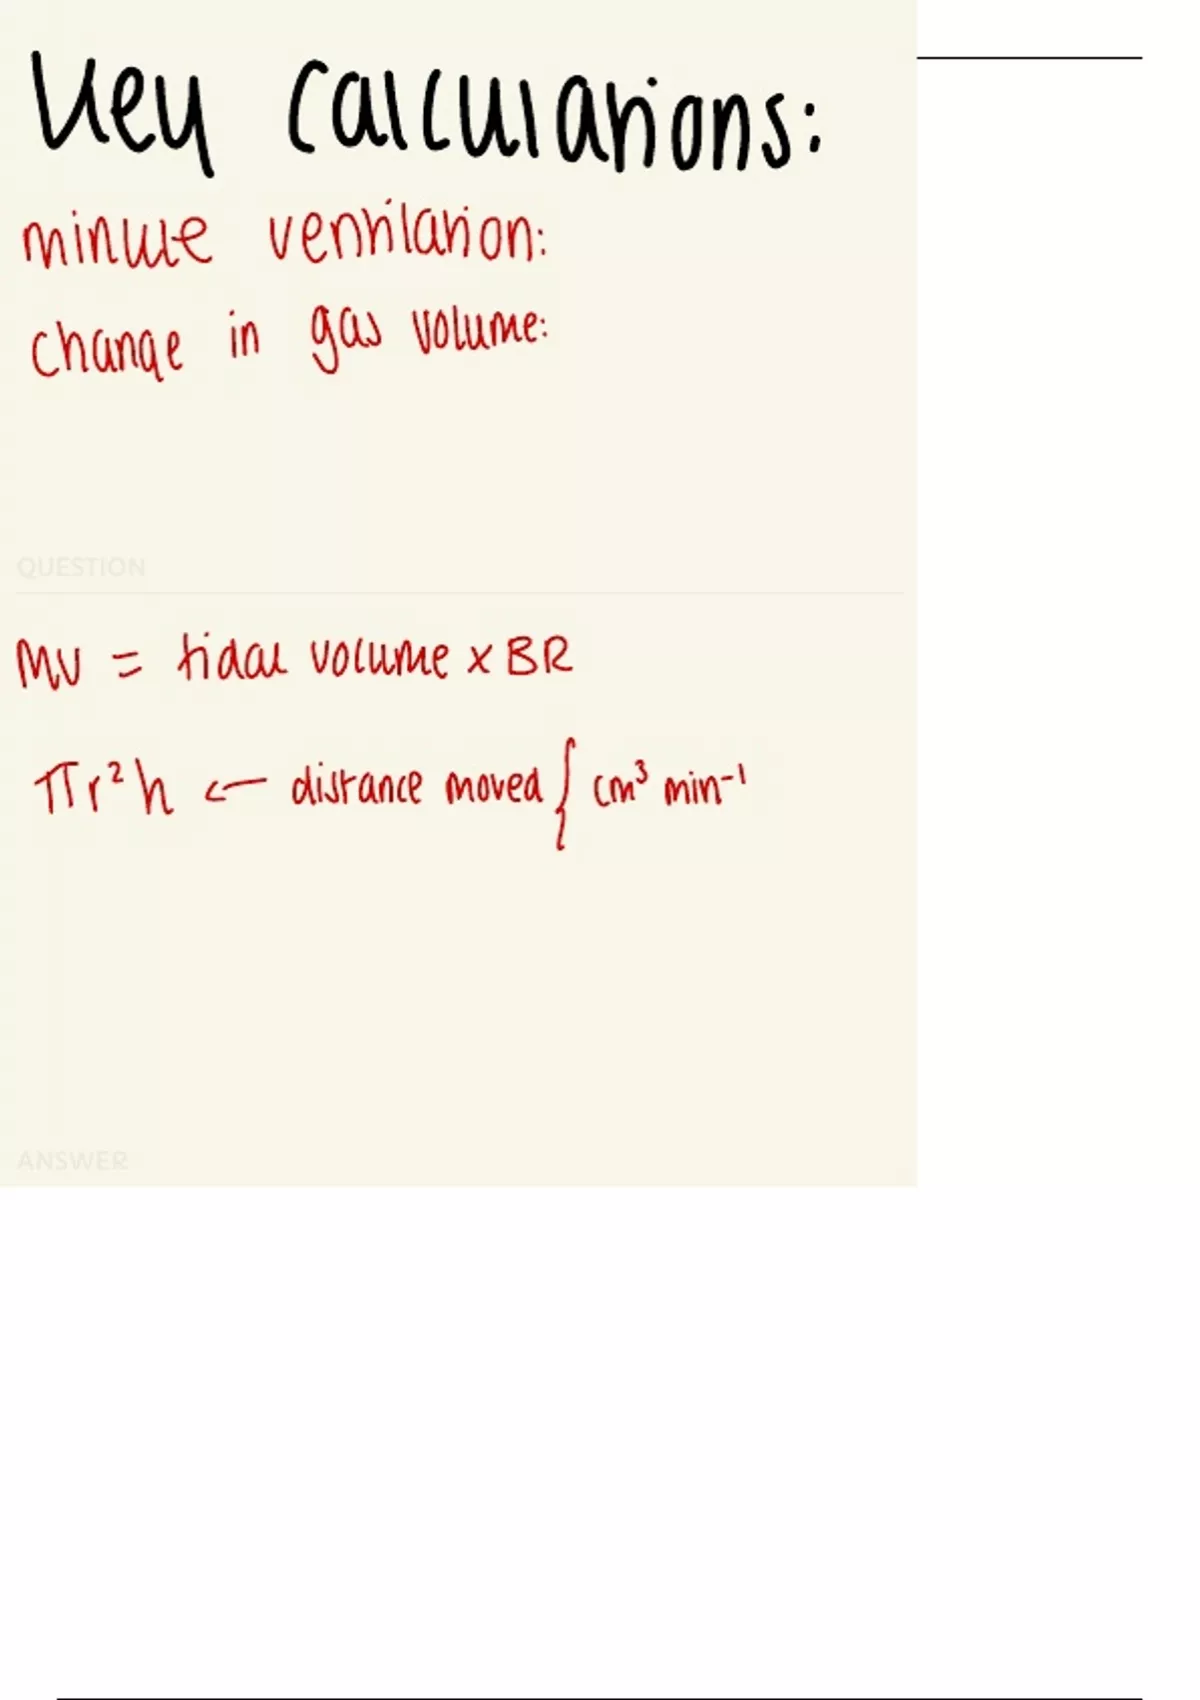 Key Calculations:
minute ventilation:
change in gas volume:
QUESTION
MV = tidal volume x BR
πr²h ← distance moved } cm³ min⁻¹
ANSWER